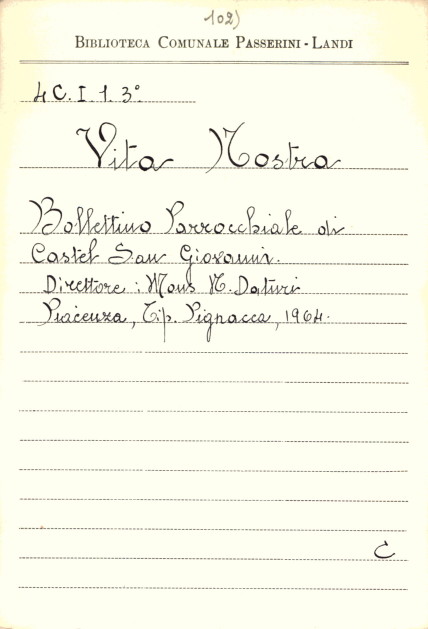 102)
BIBLIOTECA COMUNALE PASSERINI - LANDI
4 C. I. 1. 3°
Vita Nostra
Bollettino Parrocchiale di
Castel San Giovanni.
Direttore: Mons N. Daturi
Piacenza, Tip. Pignacca, 1964.
C